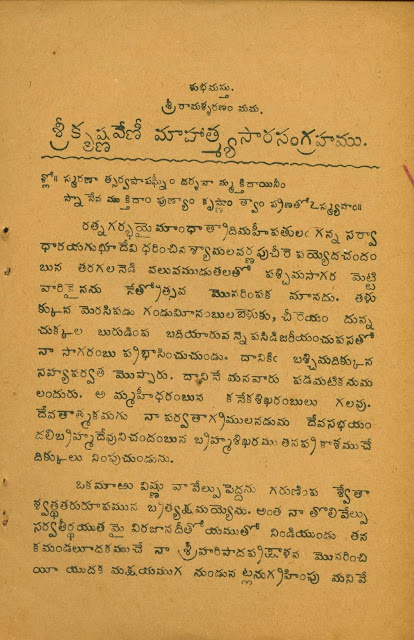 శుభమస్తు.
శ్రీ రామశ్శరణం మమ.
శ్రీ కృష్ణవేణీ మాహాత్మ్యసారసంగ్రహము.
శ్లో॥ స్మరణా త్సర్వపాపఘ్నీం దర్శనా న్ముక్తిదాయినీం
స్నానేన ముక్తిదాం పుణ్యాం కృష్ణాం త్వాం ప్రణతోఽస్మ్యహం॥
రత్నగర్భయై మాంధాత్రాదిమహీపతులం గన్న సర్వా
ధారయగు భూదేవి ధరించిన శ్యామలవర్ణపుచీరె పయ్యెదచందం
బున తరగలనెడి వలువముడుతలతో పశ్చిమసాగర మెట్టి
వారికైనను నేత్రోత్సవ మొనరింపక మానదు. తళు
క్కున మెరసిపడు గండుమీనంబులబెళుకు, చీరెయం దున్న
చుక్కల బురుడింప బదియారువన్నె పసిడిజరీయంచుపసతో
నా సాగరంబు ప్రభాసించుచుండు. దానికిం బశ్చిమదిక్కున
సహ్యపర్వత మొప్పారు. దానినే మనవారు పడమటికనుమ
లందురు. అ మ్మహీధరంబున కనేకశిఖరంబులు గలవు.
దేవతాత్మకమగు నా పర్వతాగ్రములనడుమ దేవసభయం
దలిబ్రహ్మదేవునిచందంబున బ్రహ్మశిఖరము తనప్రకాశముచే
దిక్కులు నింపుచుండును.
ఒకమాటు విష్ణు వా వేల్పుపెద్దను గరుణింప శ్వేతా
శ్వత్థతరురూపమున బ్రత్యక్షమయ్యెను. అంత నా తొలివేల్పు
సర్వతీర్థయుత మై విరజానదీతోయముతో నిండియుండు తన
కమండలూదకముచే నా శ్రీహరిపాదప్రక్షాళన మొనరించి
యీ యుదక మక్షయముగ నుండున ట్లనుగ్రహింపు మనివే